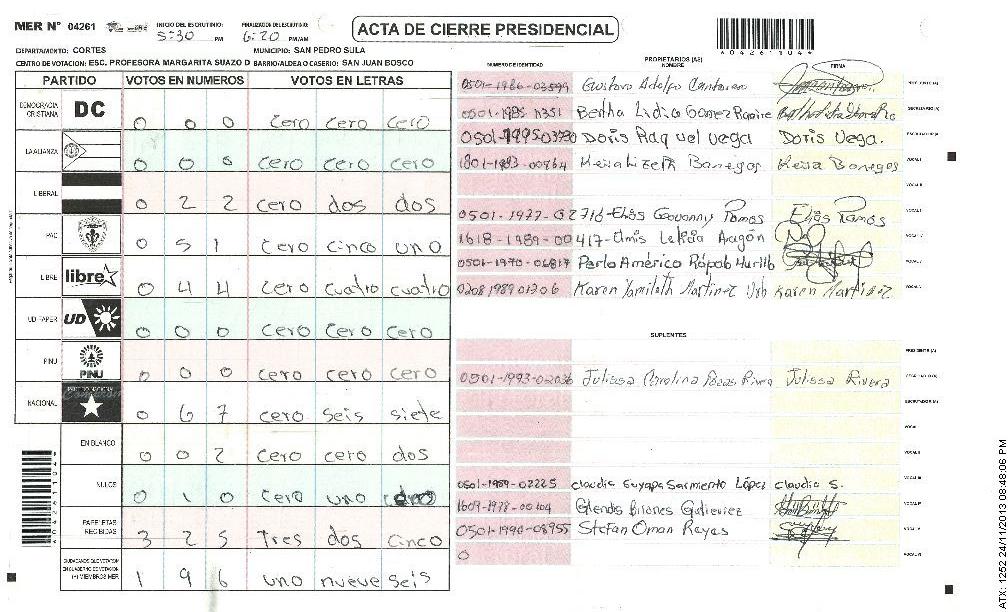 MER Nº 04261 INICIO DEL ESCRUTINIO: 5:30 PM FINALIZACION DE ESCRUTINIO: 6:20 PM/AM
ACTA DE CIERRE PRESIDENCIAL
04261104
DEPARTAMENTO: CORTES MUNICIPIO: SAN PEDRO SULA
CENTRO DE VOTACION: ESC. PROFESORA MARGARITA SUAZO D BARRIO/ALDEA O CASERIO: SAN JUAN BOSCO
PARTIDO VOTOS EN NUMEROS VOTOS EN LETRAS
DEMOCRACIA CRISTIANA DC 0 0 0 cero cero cero
LA ALIANZA 0 0 0 cero cero cero
LIBERAL 0 2 2 cero dos dos
PAC 0 5 1 cero cinco uno
LIBRE libre 0 4 4 cero cuatro cuatro
UD FAPER UD 0 0 0 cero cero cero
PINU PINU 0 0 0 cero cero cero
NACIONAL 0 6 7 cero seis siete
EN BLANCO 0 0 2 cero cero dos
NULOS 0 1 0 cero uno
PAPELETAS RECIBIDAS 3 2 5 Tres dos cinco
CIUDADANOS QUE VOTARON EN CUADERNO DE VOTACION (+) MIEMBROS MER 1 9 6 uno nueve seis
PROPIETARIOS (AS)
NUMERO DE IDENTIDAD NOMBRE FIRMA
0501-1986-03599 Gustavo Adolfo
0501-1985- Bertha Lidia Gomez
0501-1995-03930 Doris Raquel Vega Doris Vega.
1801-1983-00764 Keira Lizeth Banegas Keira Banegas
0501-1977-02716-Elias Geovanny Ramos Elias Ramos
1618-1989-00417-Onis Leticia Aragón
0501-1970-06817 Perla Américo
0208 1989 01206 Karen Yamileth Martinez Karen Martinez
SUPLENTES
PRESIDENTE (A)
0501-1993-02036 Julissa Carolina Rivera Julissa Rivera
ESCRUTADOR (A)
VOCAL I
VOCAL II
0501-1989-02225 claudia Suyapa Sarmiento López claudia S.
1609-1978-00104 Glenda Briones Gutierrez
0501-1990-08955 Stefan Omar Reyes
0
04261104
ATX: 1252 24/11/2013 08:48:06 PM